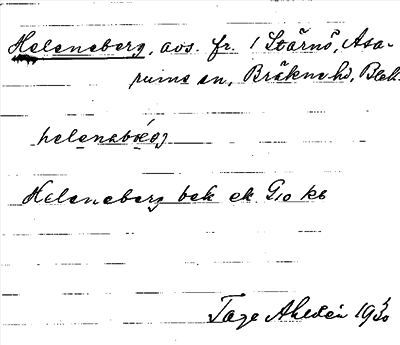 Heleneberg, avs. fr. 1 Stärnö, Asa-
rums sn, Bräkne hd, Blek.
helenabærj
Heleneberg bek ek G10 kb
Tage Ahldén 1930